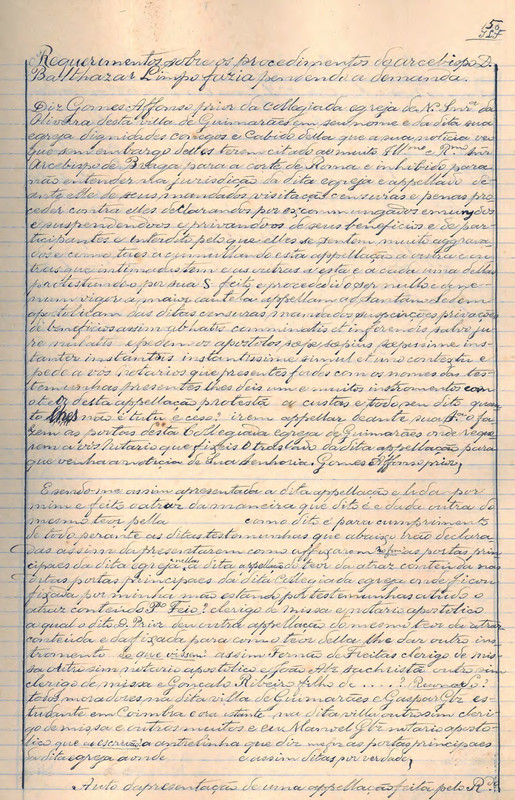 50
Requerimentos sobre os procedimentos do arcebispo D.
Balthazar Limpo fazia pendendo a demanda.
Diz Gomes Affonso prior da collegiada egreja de N. Snrª da
Oliveira desta villa de Guimarães em seu nome e da dita sua
egreja dignidades conegos e Cabido della que a sua noticia veo
que sem embargo delles terem citado ao muito Illmo e Rmo snr
Arcebispo de Braga para a corte de Roma e inhibido para
não entender na jurisdição da dita egreja e appellado de
ante elle de seus mandados visitação censuras e penas pro
ceder contra elles declarandos por excommungados
e suspendendo os e privando os de seus beneficios e de par-
ticipantes e interdito pelo que elles se sentem muito aggrava
dos e como taes accumulando esta appellação a outra e ou
tras que intimadas tem e as outras a esta e a cada uma dellas
protestando por sua S. feito e procedido ser nullo e de ne-
num vigor a maior cautela appellam
apostolicam das ditas censuras mandados suspenções privações
de beneficios assim comminatis et inferendis salvo jure
nullitatis e pedem os apostolos sepe sepius sepissime ins-
tanter instantius instantissime simul et uno contextu e
pede a vós notarios que presentes fordes com os nomes das tes-
temunhas presentes lhes deis um e muitos instromentos com
o teor desta appellação protesta custas e todo sem dito
lhes não é tuto e ceso? irem appellar deante sua S.ria o fa-
zem as portas desta Collegiada egreja de Guimarães onde reque
rem a vós Notario que fixeis o treslado da dita appellação para
que venha a noticia de Sua Senhoria Gomes Affonso prior,
E sendo-me assim apresentada a dita appellação e lida por
mim e feito outrar da maneira que dito é e dada outra do
mesmo teor pella como dito é para cumprimento
de todo perante as ditas testemunhas que abaixo irão declara-
das assim da presentarem como affixarem nas portas prin-
cipaes da dita egreja a dita appellação do teor da atraz conteuda nas
ditas portas principaes da dita Collegiada egreja onde ficou
fixada por minha mão estando por testemunhas a tudo o
atraz conteudo Po Feio? clerigo de missa e notario apostolico
a qual o dito D. Prior deu outra appellação do mesmo teor da atraz
conteuda e da fixada para com o teor della lhe dar outro ins-
tromento assim Fernão de Freitas clerigo de mis-
sa outrosim notario apostolico e João Alz sachristã outrosim
clerigo de missa e Gonçalo Ribeiro filho de .....? Reymondo?
todos moradores na dita villa de Guimarães e Gaspar Glz es-
tudante em Coimbra e ora estante na dita villa outrosim cleri
go de missa e outros muitos e eu Manoel Glz notario aposto-
lico que o escrevi a antrelinha que diz nas portas principaes
da dita egreja aonde e assim ditas por verdade,
Auto da presentação de uma appellação feita pelo R.do